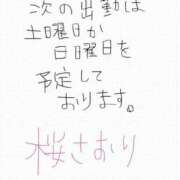 次の出勤は
土曜日か
日曜日を
予定して
おります。
桜さおり